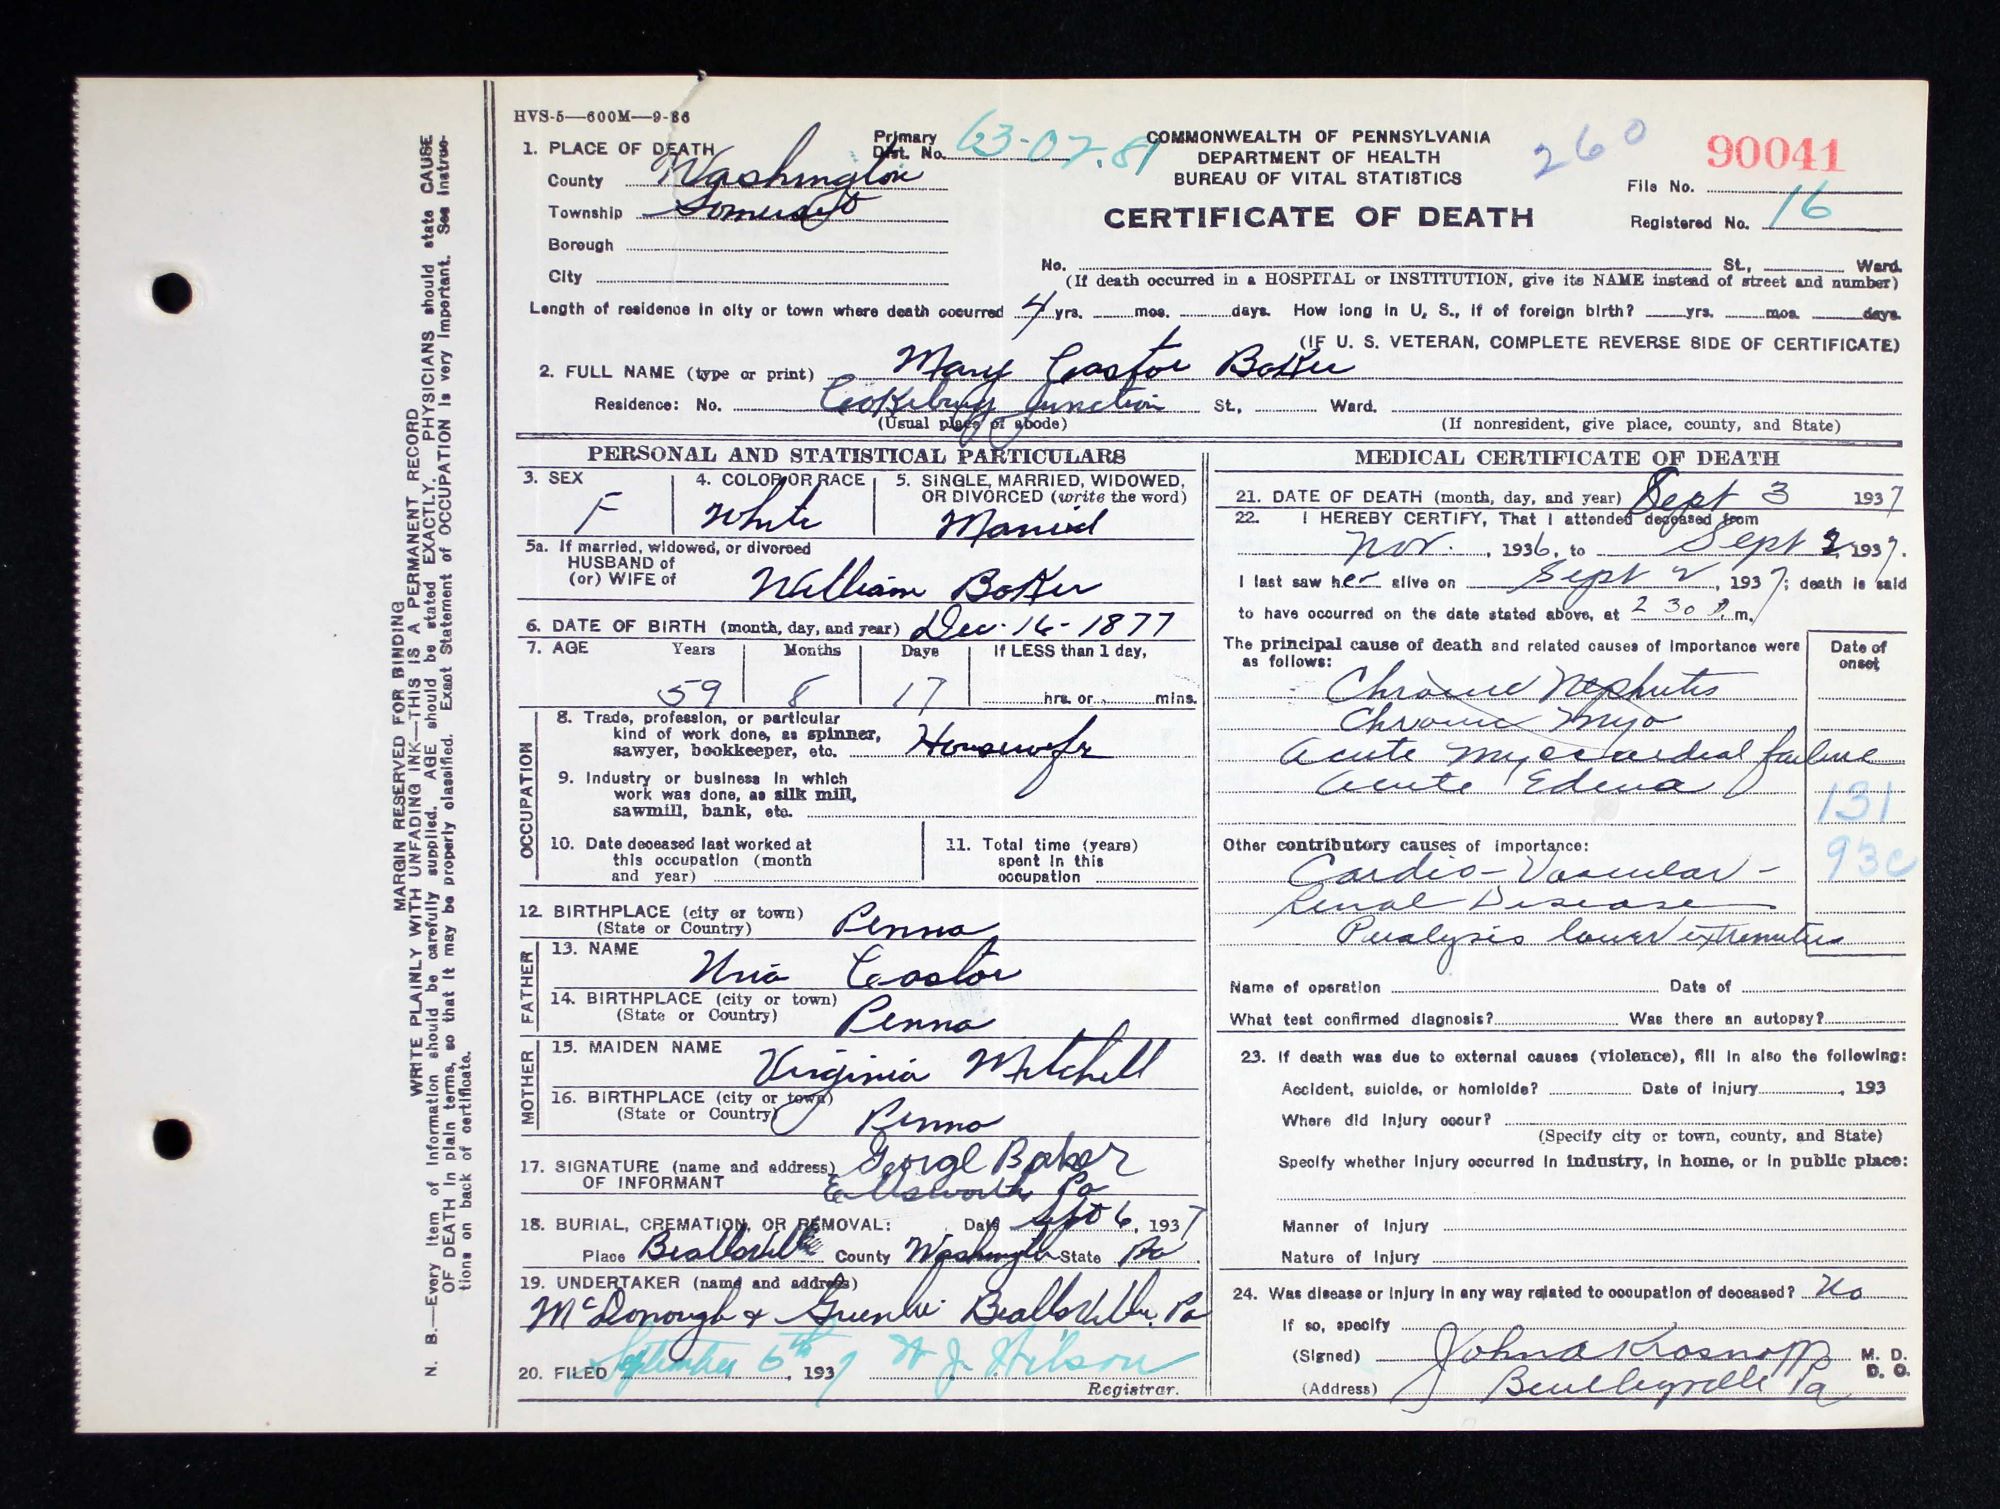 HVS-5—600M—9-36
1. PLACE OF DEATH
County Washington
Township Somerset
Borough
City
Primary Dist. No. 63-02-81
COMMONWEALTH OF PENNSYLVANIA
DEPARTMENT OF HEALTH
BUREAU OF VITAL STATISTICS
CERTIFICATE OF DEATH
260
90041
File No.
Registered No. 16
No. St., Ward.
(If death occurred in a HOSPITAL or INSTITUTION, give its NAME instead of street and number)
Length of residence in city or town where death occurred 4 yrs. mos. days. How long in U. S., if of foreign birth? yrs. mos. days.
(IF U. S. VETERAN, COMPLETE REVERSE SIDE OF CERTIFICATE)
2. FULL NAME (type or print) Mary Castor Baker
Residence: No. Cokeburg Junction St., Ward.
(Usual place of abode) (If nonresident, give place, county, and State)
PERSONAL AND STATISTICAL PARTICULARS
3. SEX
F
4. COLOR OR RACE
White
5. SINGLE, MARRIED, WIDOWED,
OR DIVORCED (write the word)
Married
5a. If married, widowed, or divorced
HUSBAND of
(or) WIFE of William Baker
6. DATE OF BIRTH (month, day, and year) Dec-16-1877
7. AGE Years Months Days If LESS than 1 day,
59 8 17 hrs. or mins.
OCCUPATION
8. Trade, profession, or particular
kind of work done, as spinner,
sawyer, bookkeeper, etc. Housewife
9. Industry or business in which
work was done, as silk mill,
sawmill, bank, etc.
10. Date deceased last worked at
this occupation (month
and year)
11. Total time (years)
spent in this
occupation
12. BIRTHPLACE (city or town)
(State or Country) Penna
FATHER
13. NAME
Uria Castor
14. BIRTHPLACE (city or town)
(State or Country) Penna
MOTHER
15. MAIDEN NAME
Virginia Mitchell
16. BIRTHPLACE (city or town)
(State or Country) Penna
17. SIGNATURE (name and address) George Baker
OF INFORMANT Ellsworth Pa
18. BURIAL, CREMATION, OR REMOVAL: Date Sept 6, 1937
Place Beallsville County Washington State Pa
19. UNDERTAKER (name and address)
McDonough & Greenlee Beallsville, Pa
20. FILED September 6th, 1937 Wilson
Registrar.
MEDICAL CERTIFICATE OF DEATH
21. DATE OF DEATH (month, day, and year) Sept 3 1937
22. I HEREBY CERTIFY, That I attended deceased from
Nov., 1936, to Sept 2, 1937.
I last saw her alive on Sept 2, 1937; death is said
to have occurred on the date stated above, at 2 30 P.m.
The principal cause of death and related causes of importance were
as follows:
Date of
onset
Chronic Nephritis
Chronic Myo
acute myocardial failure
acute Edema
131
93c
Other contributory causes of importance:
Cardio-Vascular-
Renal Disease
Paralysis lower extremities
Name of operation Date of
What test confirmed diagnosis? Was there an autopsy?
23. If death was due to external causes (violence), fill in also the following:
Accident, suicide, or homicide? Date of injury , 193
Where did injury occur?
(Specify city or town, county, and State)
Specify whether injury occurred in industry, in home, or in public place:
Manner of injury
Nature of injury
24. Was disease or injury in any way related to occupation of deceased? No
If so, specify
(Signed) John A Krosnoff M. D.
D. O.
(Address) Bentleyville Pa
MARGIN RESERVED FOR BINDING
WRITE PLAINLY WITH UNFADING INK—THIS IS A PERMANENT RECORD
N. B.—Every item of information should be carefully supplied. AGE should be stated EXACTLY. PHYSICIANS should state CAUSE
OF DEATH in plain terms, so that it may be properly classified. Exact Statement of OCCUPATION is very important. See instruc-
tions on back of certificate.